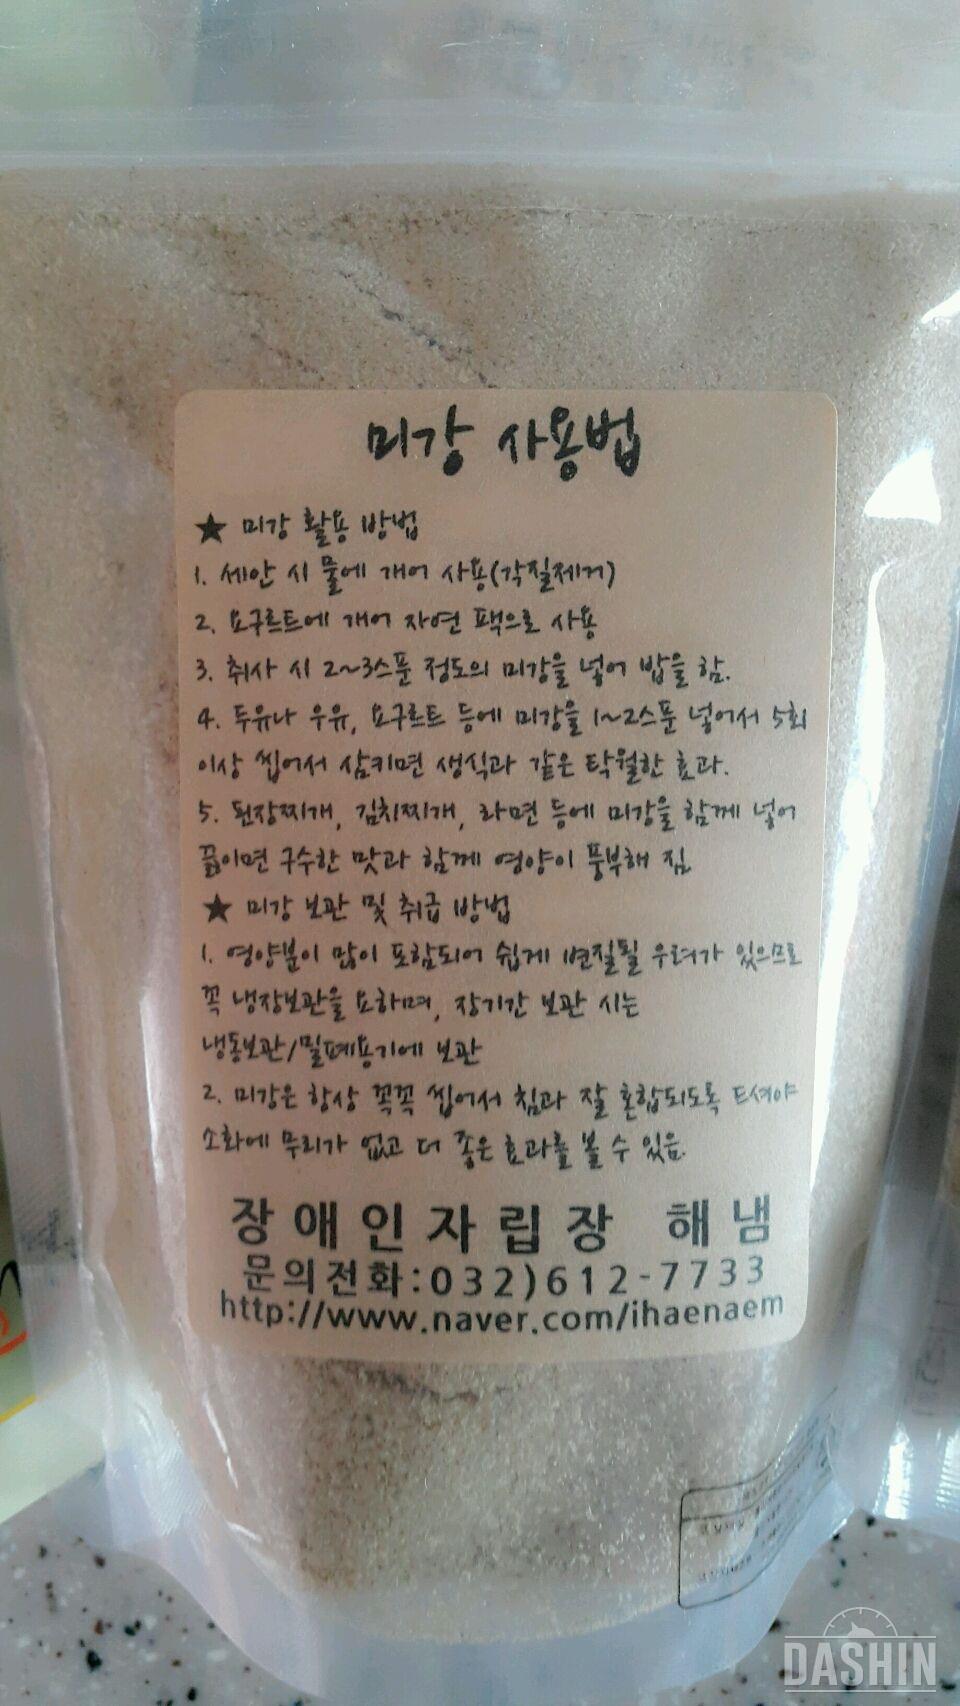 미강 사용법
★ 미강 활용 방법
1. 세안 시 물에 개어 사용(각질제거)
2. 요구르트에 개어 자연 팩으로 사용
3. 취사 시 2~3스푼 정도의 미강을 넣어 밥을 함.
4. 두유나 우유, 요구르트 등에 미강을 1~2스푼 넣어서 5회
이상 씹어서 삼키면 생식과 같은 탁월한 효과.
5. 된장찌개, 김치찌개, 라면 등에 미강을 함께 넣어
끓이면 구수한 맛과 함께 영양이 풍부해 짐.
★ 미강 보관 및 취급 방법
1. 영양분이 많이 포함되어 쉽게 변질될 우려가 있으므로
꼭 냉장보관을 요하며, 장기간 보관 시는
냉동보관/밀폐용기에 보관
2. 미강은 항상 꼭꼭 씹어서 침과 잘 혼합되도록 드셔야
소화에 무리가 없고 더 좋은 효과를 볼 수 있음.
장애인자립장 해냄
문의전화:032)612-7733
http://www.naver.com/ihaenaem
DASHIN